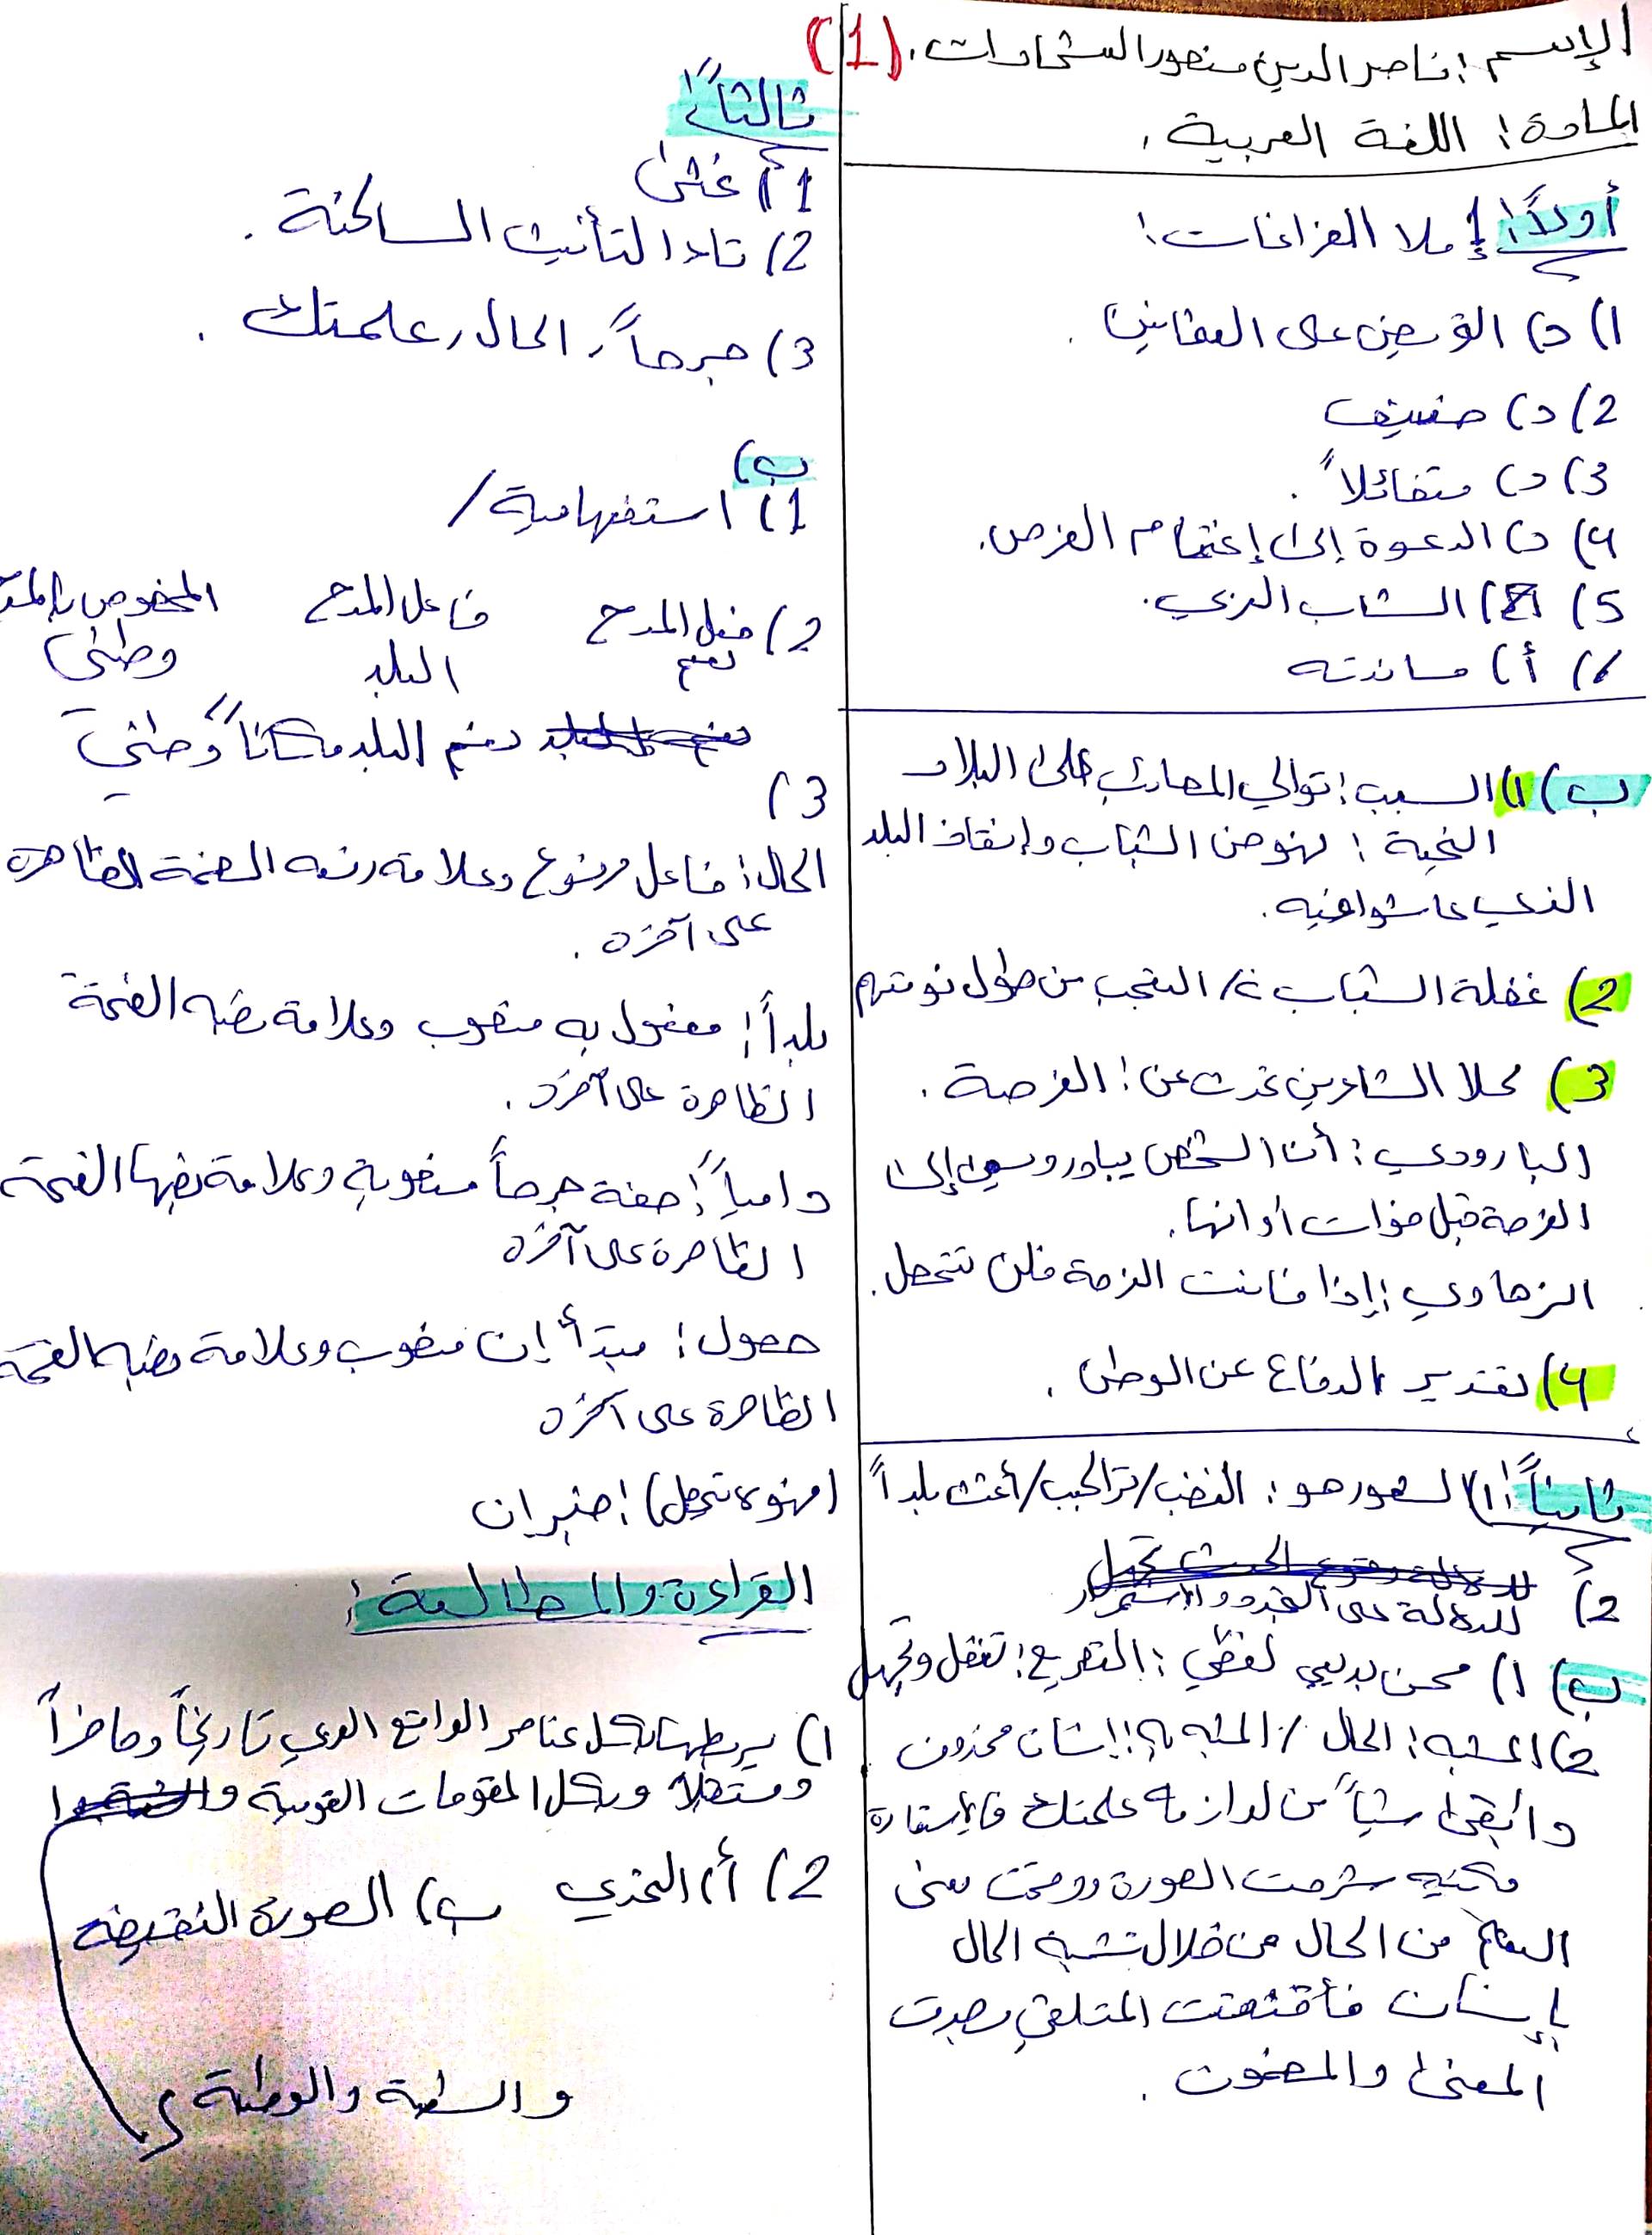 الإسم: ناصر الدين منصور الشحادات. (1)
المادة: اللغة العربية.
أولاً: إملا الفراغات:
1) د)  على
2) د)
3) د) متفائلاً.
4) د) الدعوة إلى إغتنام الفرص.
5) الشاب الذي.
6) أ) مساندته
ب) 1) السبب: توالي المصائب على البلاد
النتيجة: نهوض الشباب وإنقاذ البلد
الذي عاشوا فيه.
2) غفلة الشباب / التعجب من طول نومتهم
3) كلا الشاعرين تحدث عن: الفرصة.
البارودي: أن الشخص يبادر ويسعى إلى
الفرصة قبل فوات أوانها.
الزهاوي: إذا فاتت الفرصة فلن تتحصل.
4) تقدير الدفاع عن الوطن.
ثانياً: 1) الشعور هو: الغضب / / بلداً
2)
للدلالة على التجدد والاستمرار
ب) 1) محسن بديعي لفظي: التصريع: تغفل وتجهل
2) المشبه: الحال / المشبه به: إنسان محذوف
وأبقى شيئاً من لوازمه علمتك فالإستعارة
مكنية شرحت الصورة ووضحت معنى
من الحال من خلال تشبيه الحال
بإنسان فأقنعت المتلقي بصدق
المعنى والمضمون.
ثالثاً:
1) أ) غشى
2) تاء التأنيث الساكنة.
3) جرحاً، الحال، علمتك.
ب)
1) استفهامية /
2) فعل المدح فاعل المدح المخصوص بالمدح
نعم البلد وطني
نعم البلد مكاناً وطني
3)
الحال: فاعل مرفوع وعلامة رفعه الضمة الظاهرة
على آخره.
بلداً: مفعول به منصوب وعلامة نصبه الفتحة
الظاهرة على آخره.
دامياً: صفة جرحاً منصوبة وعلامة نصبها الفتحة
الظاهرة على آخره
حصول: مبتدأ إن منصوب وعلامة نصبه الفتحة
الظاهرة على آخره
(فهو لا تتحصل): خبر إن
القراءة والمطالعة:
1) يربطها بكل عناصر الواقع العربي تاريخاً وحاضراً
ومستقبلاً وبكل المقومات القومية
2) أ) التحدي ب) الصورة النقيضة
والوطنية